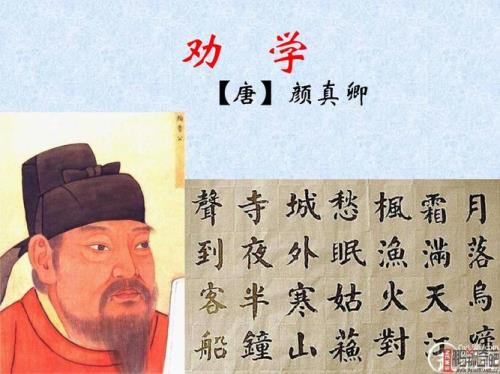 劝 学
【唐】颜真卿
顏魯公
月落烏啼
霜滿天江
楓漁火對
愁眠姑蘓
城外寒山
寺夜半鐘
聲到客船